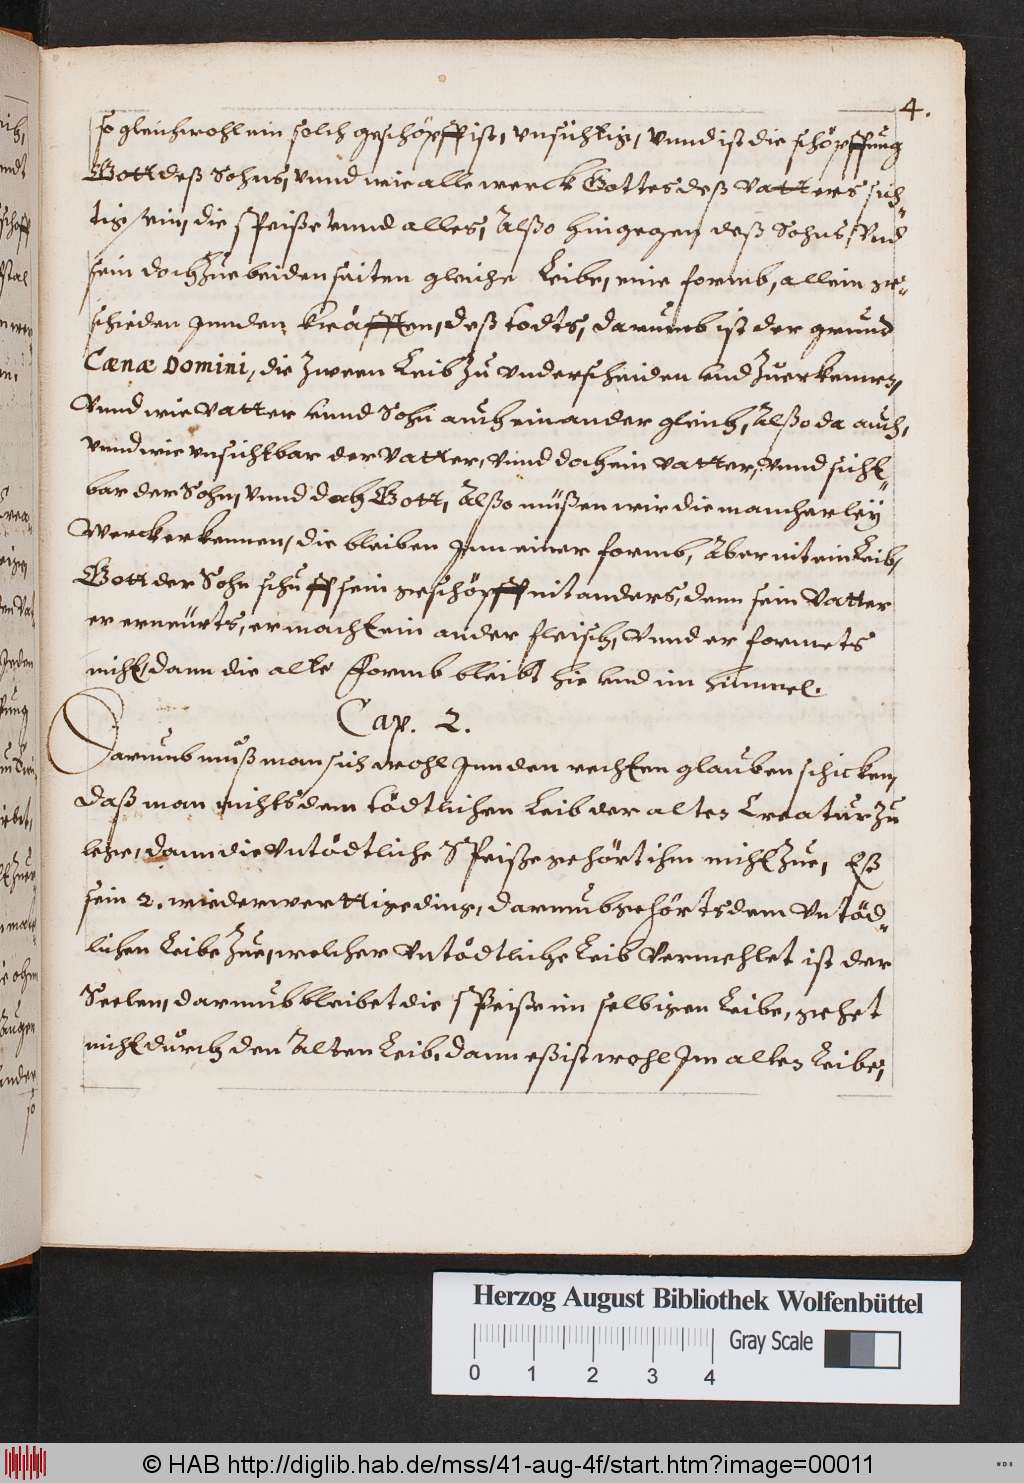 4.
so gleichwohl ein solch geschöpff ist, vnsichtig, Vnnd ist die schöpffung
Gott deß Sohns, vnnd wie alle werck Gottes deß Vatters sich„
tig sein, die speiße vnnd alles, Alßo hingegen deß Sohns, Vnd
sein doch Zue beiden seiten gleiche Leibe, eine formb, allein ge„
schieden Jnn den kräfften, deß todts, darumb ist der grund
Cænæ Domini, die Zween Leib Zu vnderscheiden vnd Zuerkennen,
Vnnd wie Vatter vnnd Sohn auch einander gleich, Alßo da auch,
vnnd wie vnsichtbar der Vatter, vnnd doch ein Vatter, Vnnd sicht„
bar der Sohn, Vnnd doch Gott, Alßo müßen wir die mancherley
Werck erkennen, die bleiben Jnn einer formb, Aber nit ein Leib,
Gott der Sohn schuff sein geschöpff nit anders, denn sein Vatter
er erneurts, er macht ein ander fleisch, Vnnd er formets
nicht, dann die alte Formb bleibt hie vnd im himmel.
Cap. 2.
Darumb muß man sich wohl Jnn den rechten glauben schicken,
daß man nichts dem tödtlichen Leib der alten Creatur Zu
lege, dann die Vntödtliche Speiße gehört ihm nicht Zue, Eß
sein 2. wiederwerttige ding, darumb gehörts dem Vntöd„
lichen Leibe Zue, welcher Vntödtliche Leib Vermehlet ist der
Seelen, darumb bleibet die speiße im selbigen Leibe, gehet
nicht durch den Alten Leib, dann eß ist wohl Jm alten Leibe,
Herzog August Bibliothek Wolfenbüttel
Gray Scale
0 1 2 3 4
© HAB http://diglib.hab.de/mss/41-aug-4f/start.htm?image=00011